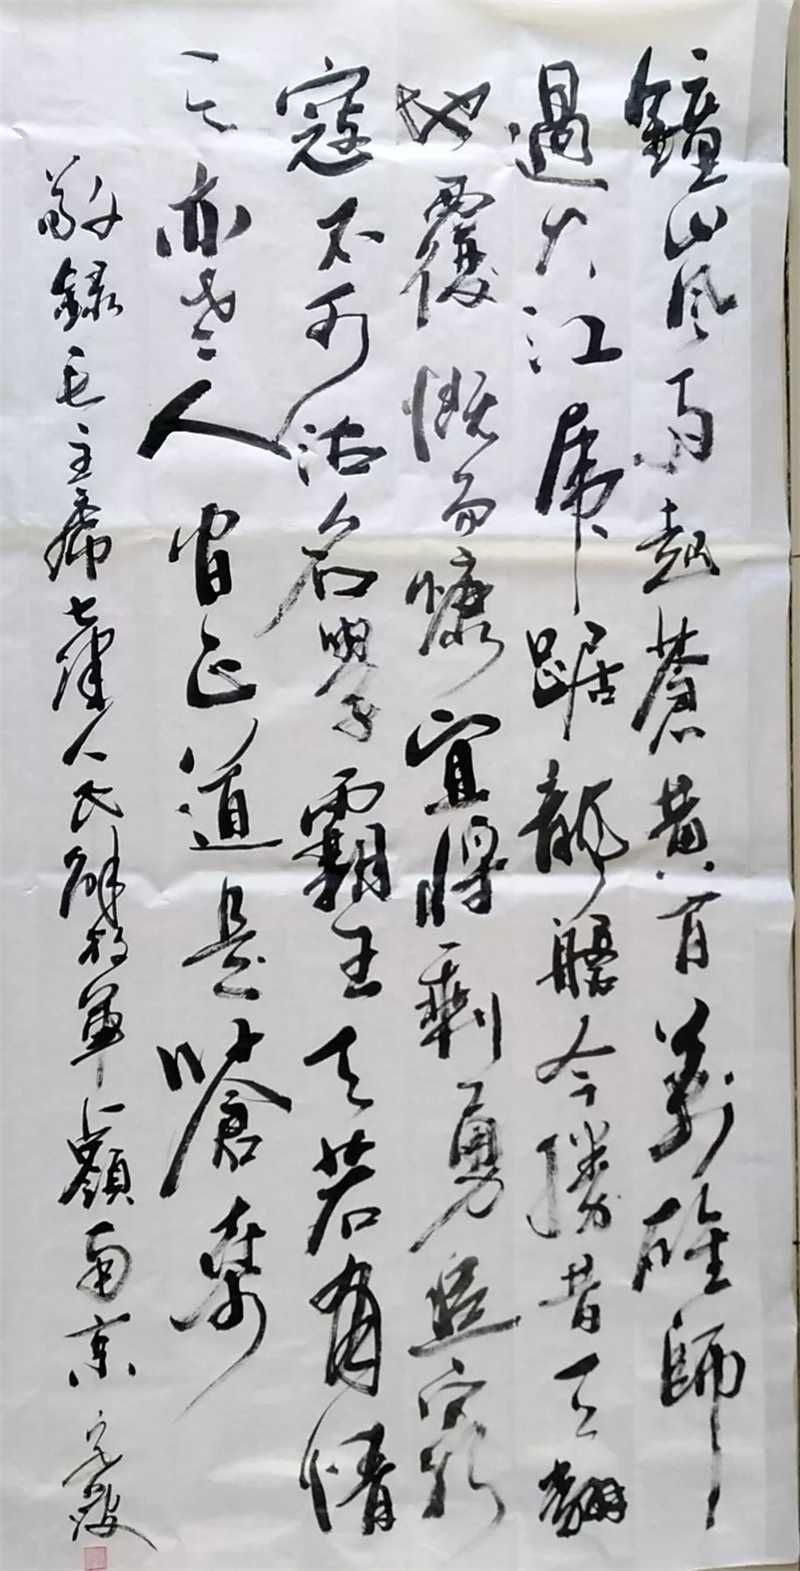 鐘山风雨起蒼黄百萬雄師
過大江虎踞龍盤今勝昔天翻
地覆慨而慷宜將剩勇追窮
寇不可沽名學霸王天若有情
天亦老人間正道是滄桑
敬録毛主席七律人民解放軍占領南京